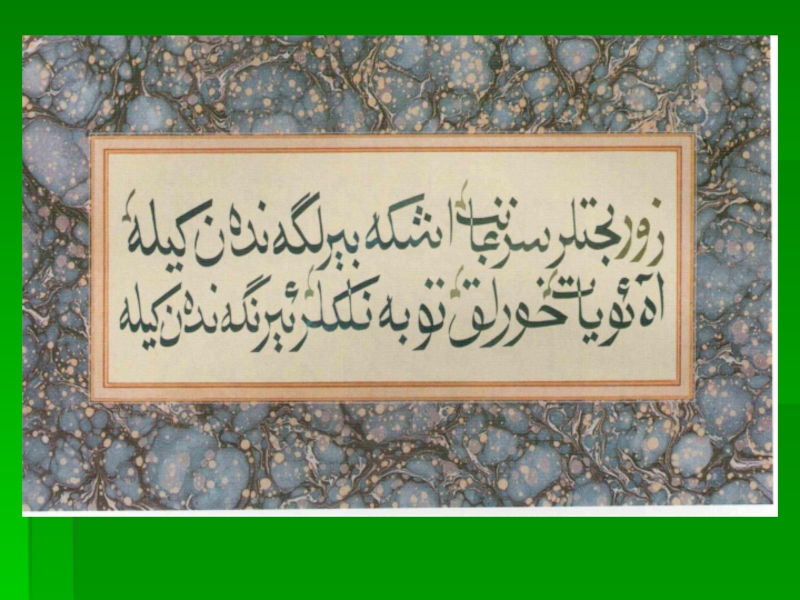 زور بختلر اشكه بیرلگه نده ن كیله
آه ئویات خورلق توبه نلكلر ئیرنگه نده ن كیله